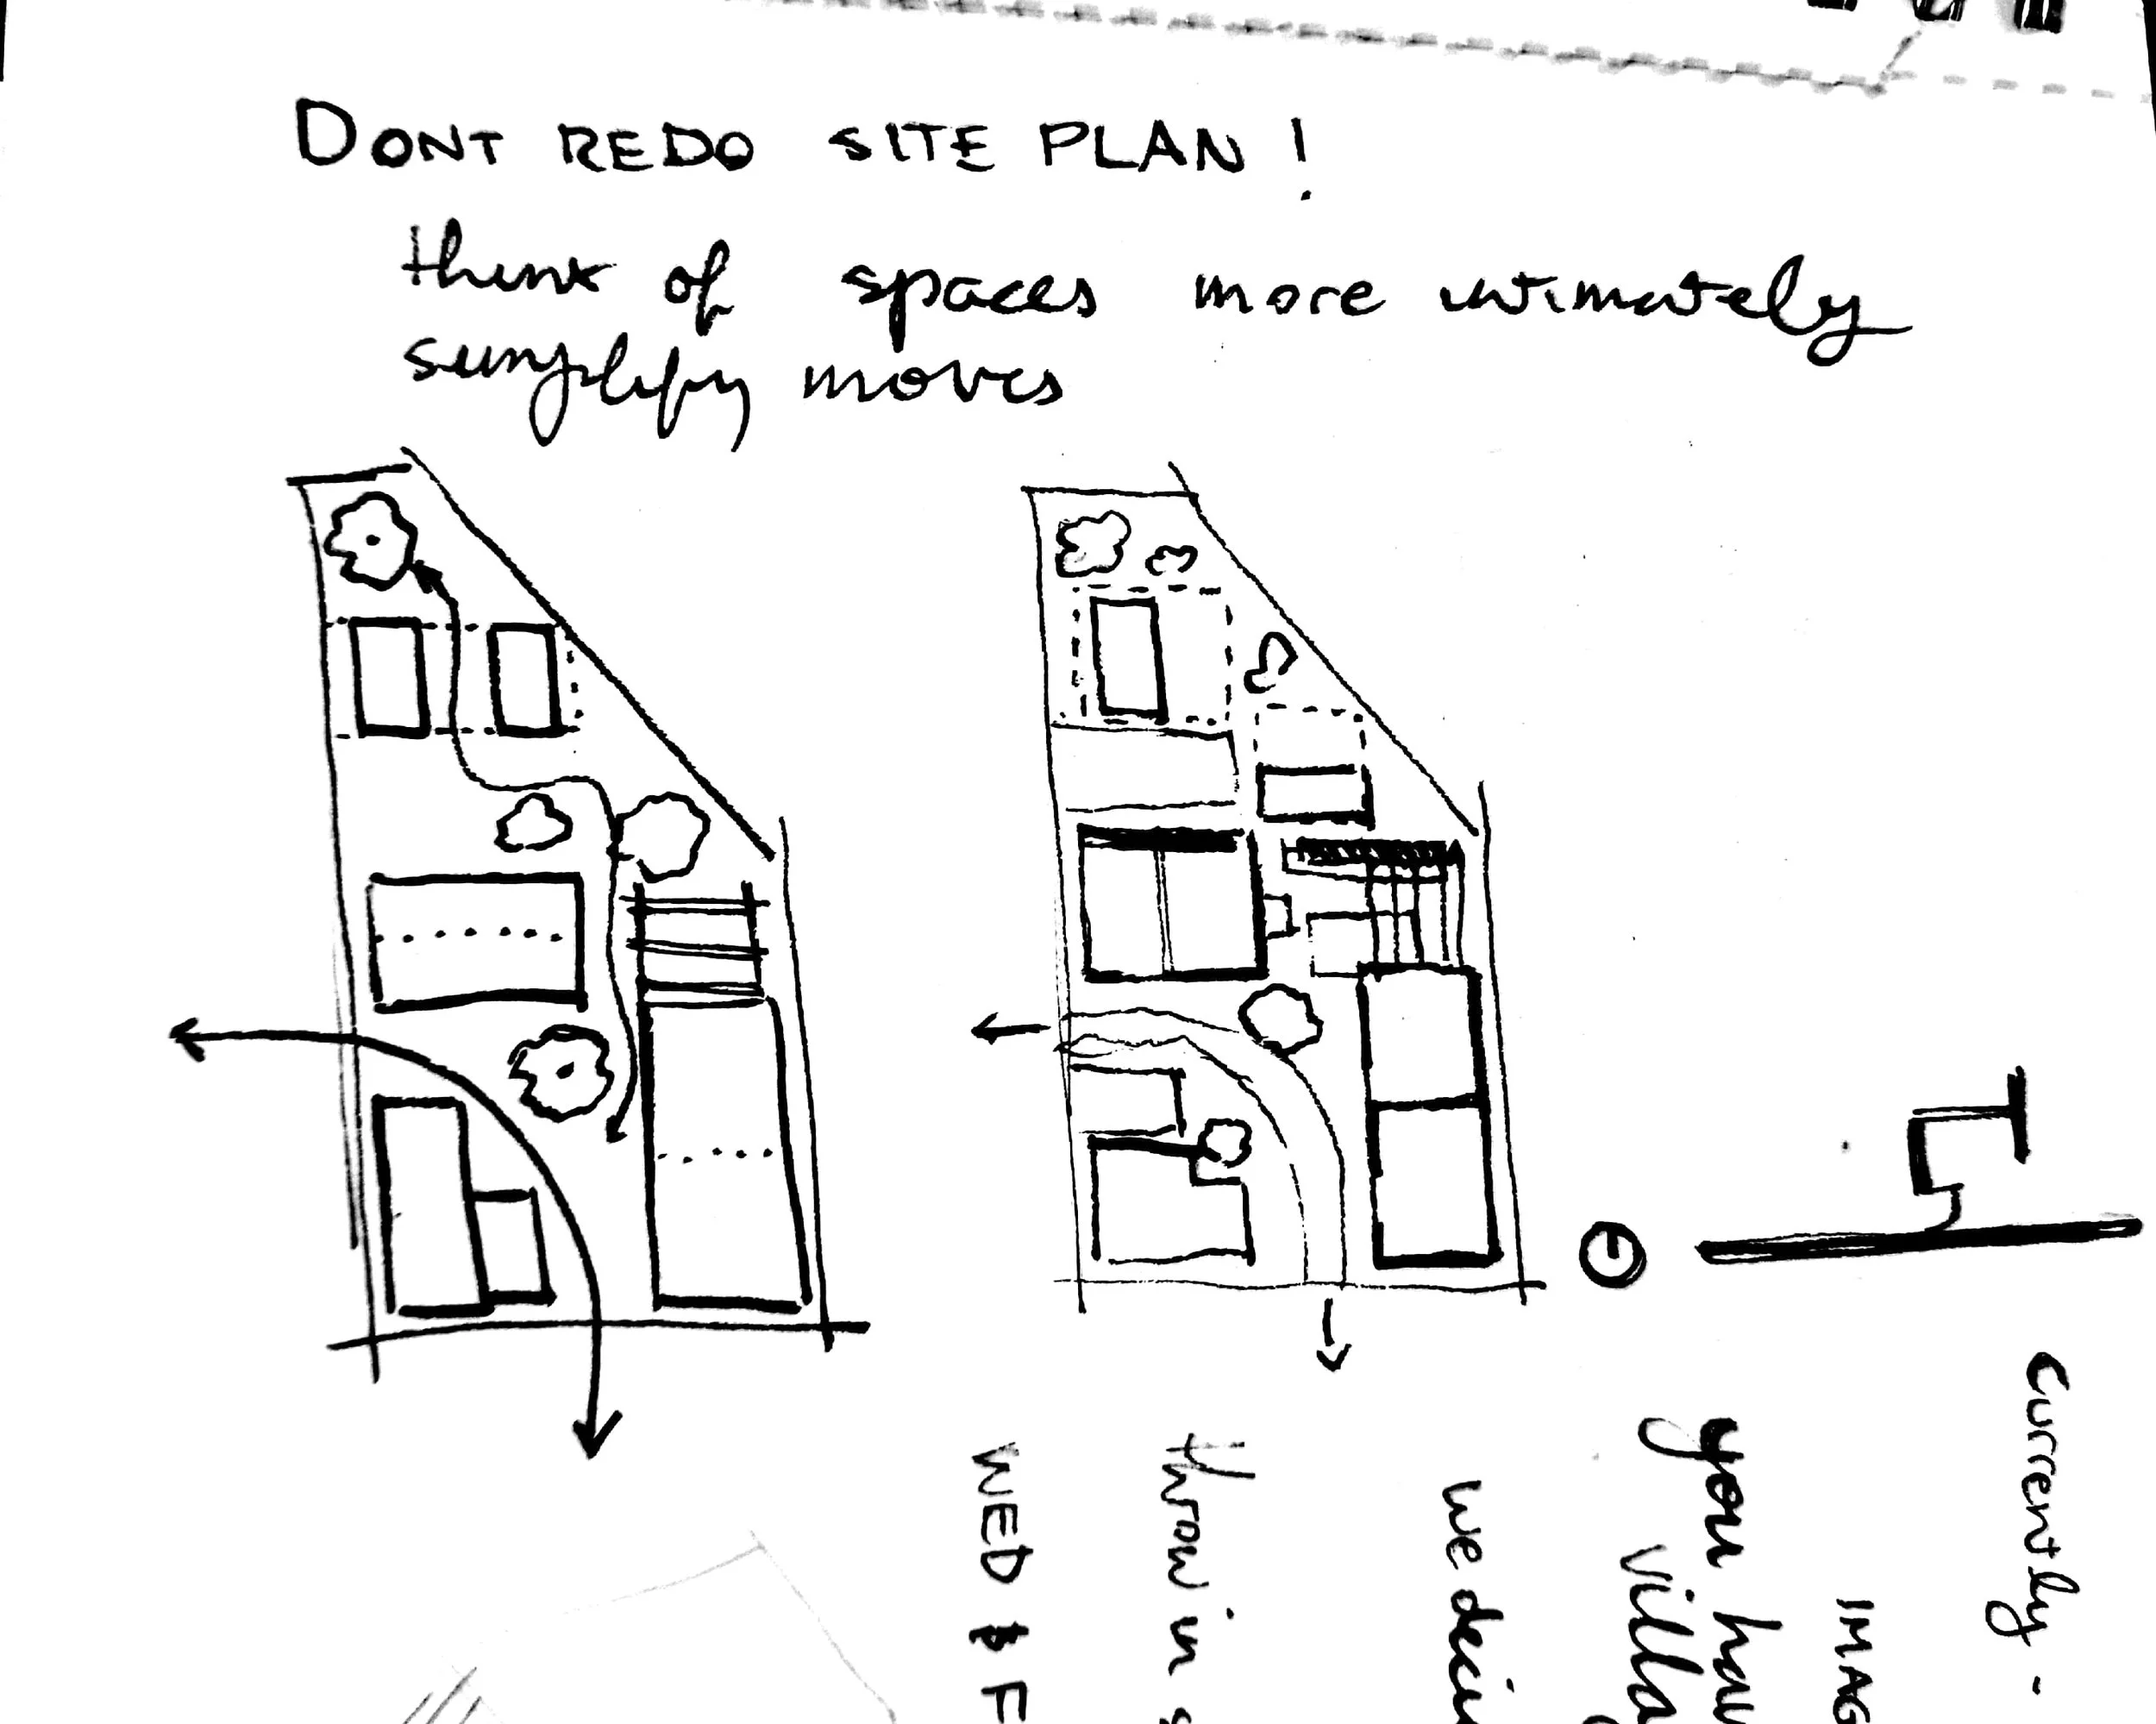 DONT REDO SITE PLAN!
think of spaces more intimately
simplify moves
currently -
IMAG
you hav
villa
we deci
throw in
WED & F